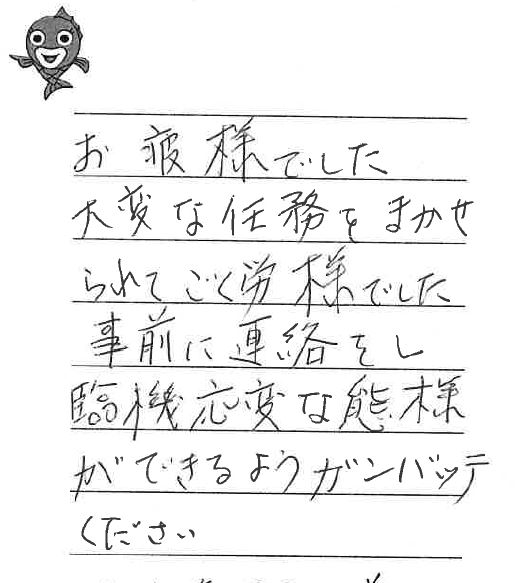 お疲様でした
大変な任務をまかせ
られてごく労様でした
事前に連絡をし
臨機応変な態様
ができるようガンバッテ
ください